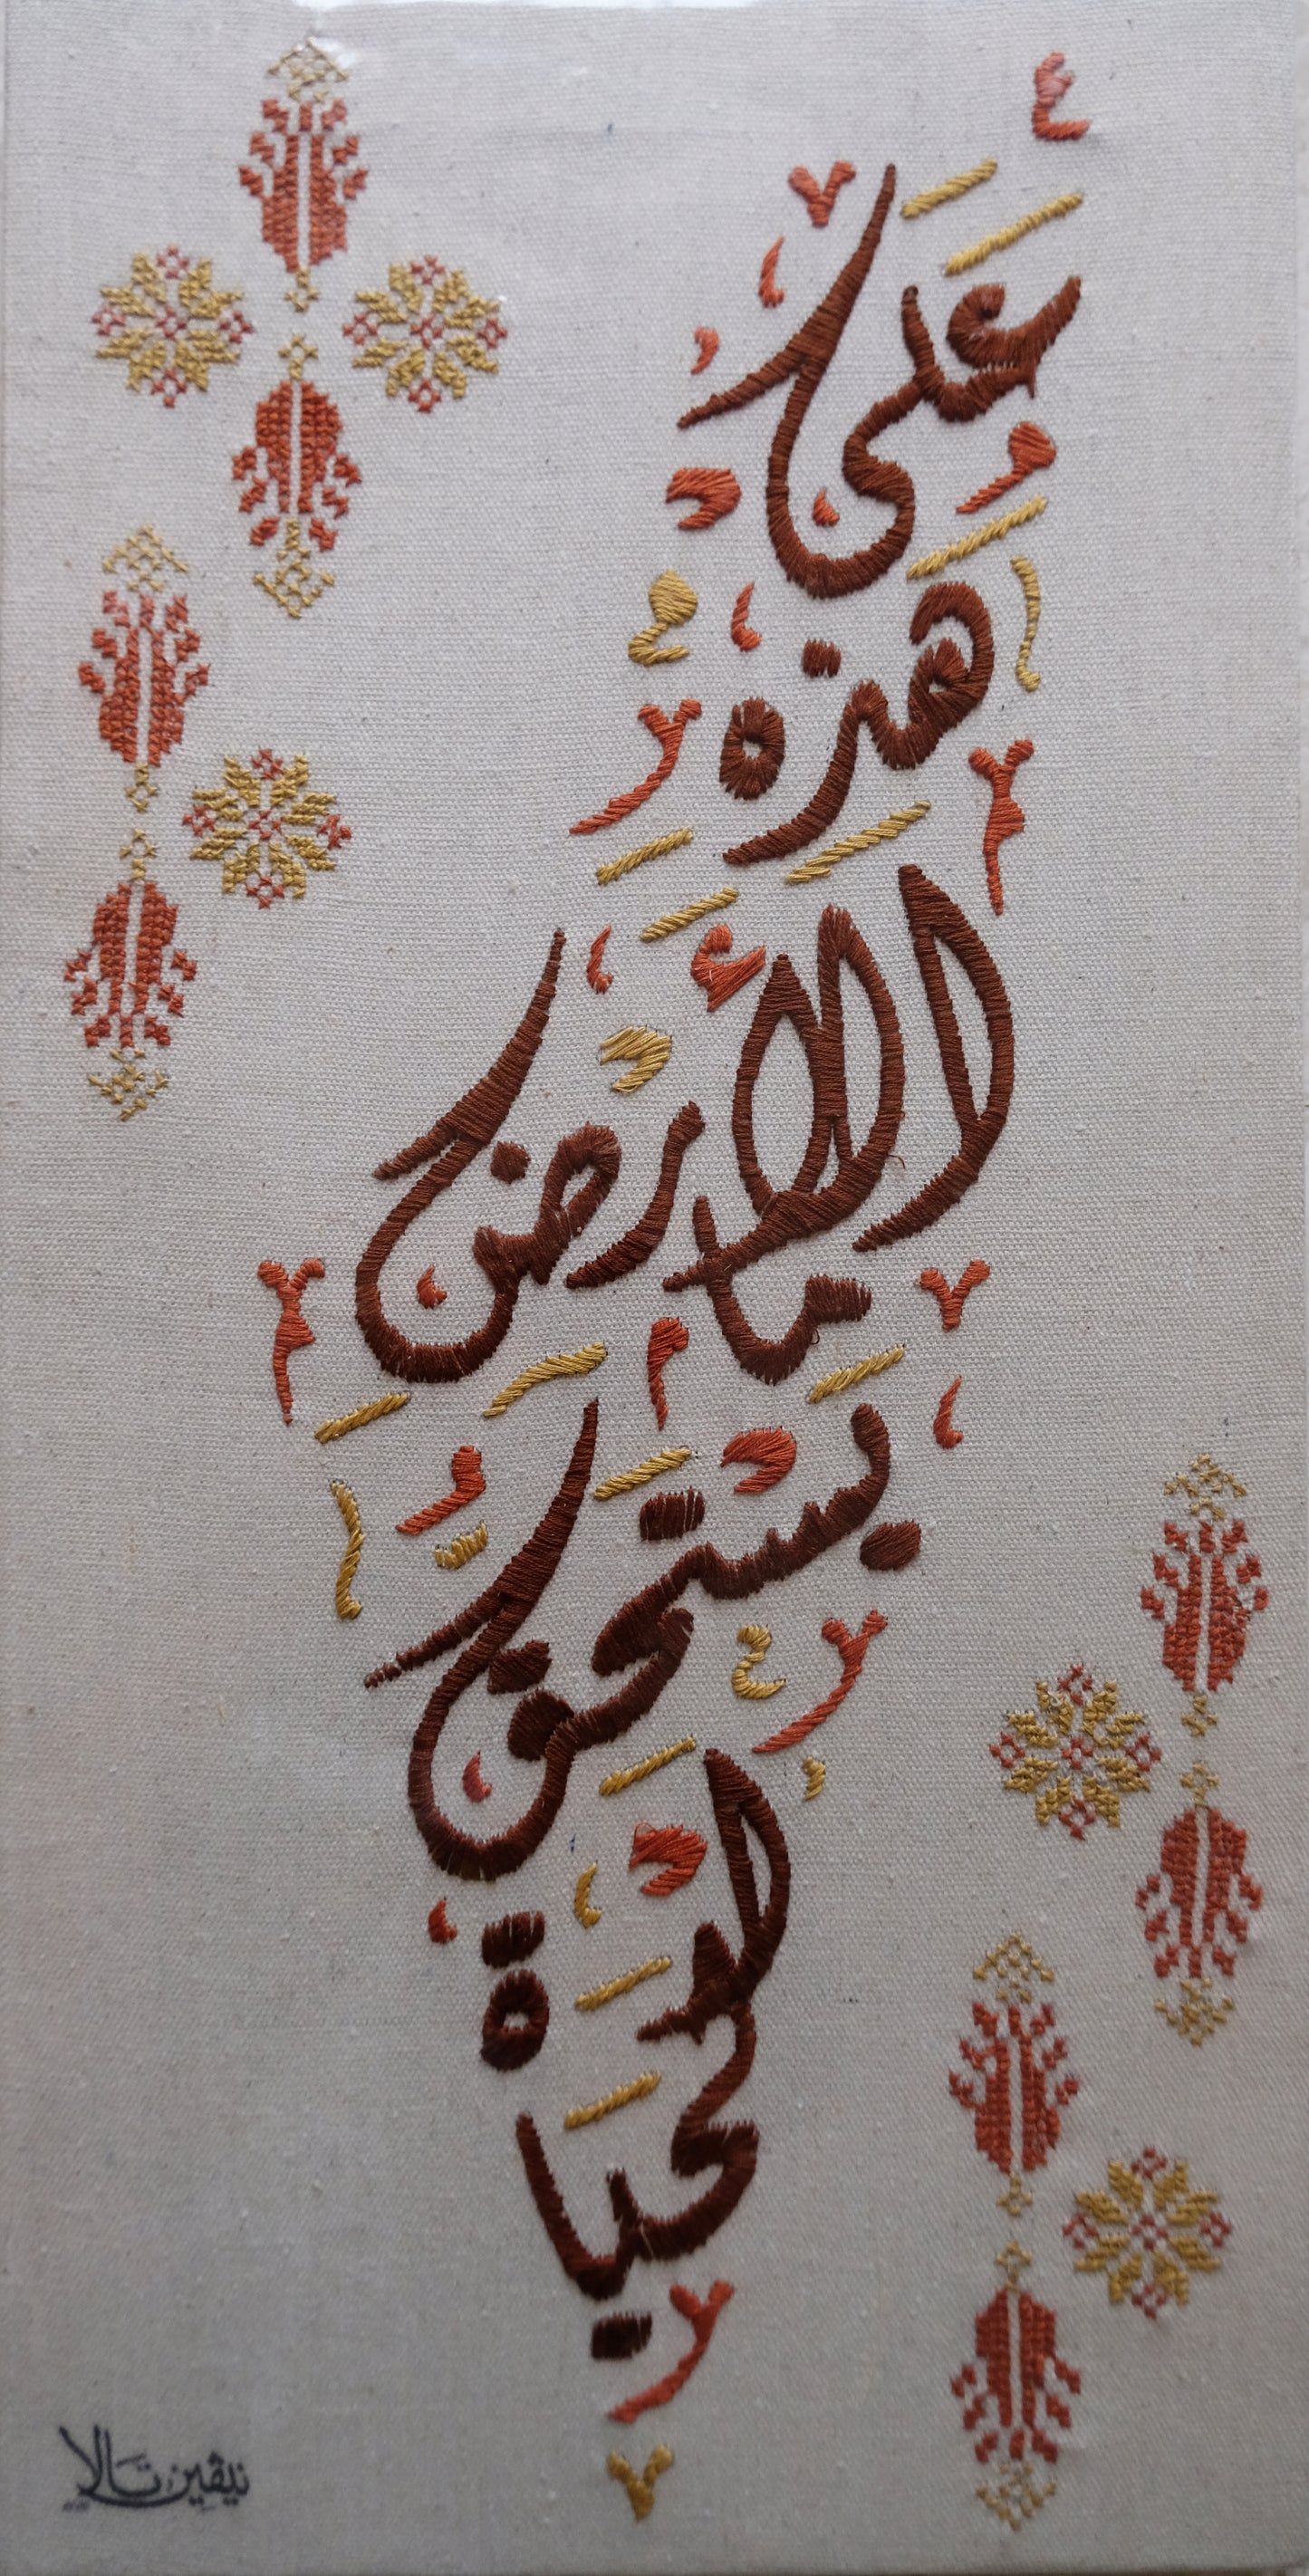 على
هذه
الأرض
ما
يستحق
الحياة
نيڤين تالا